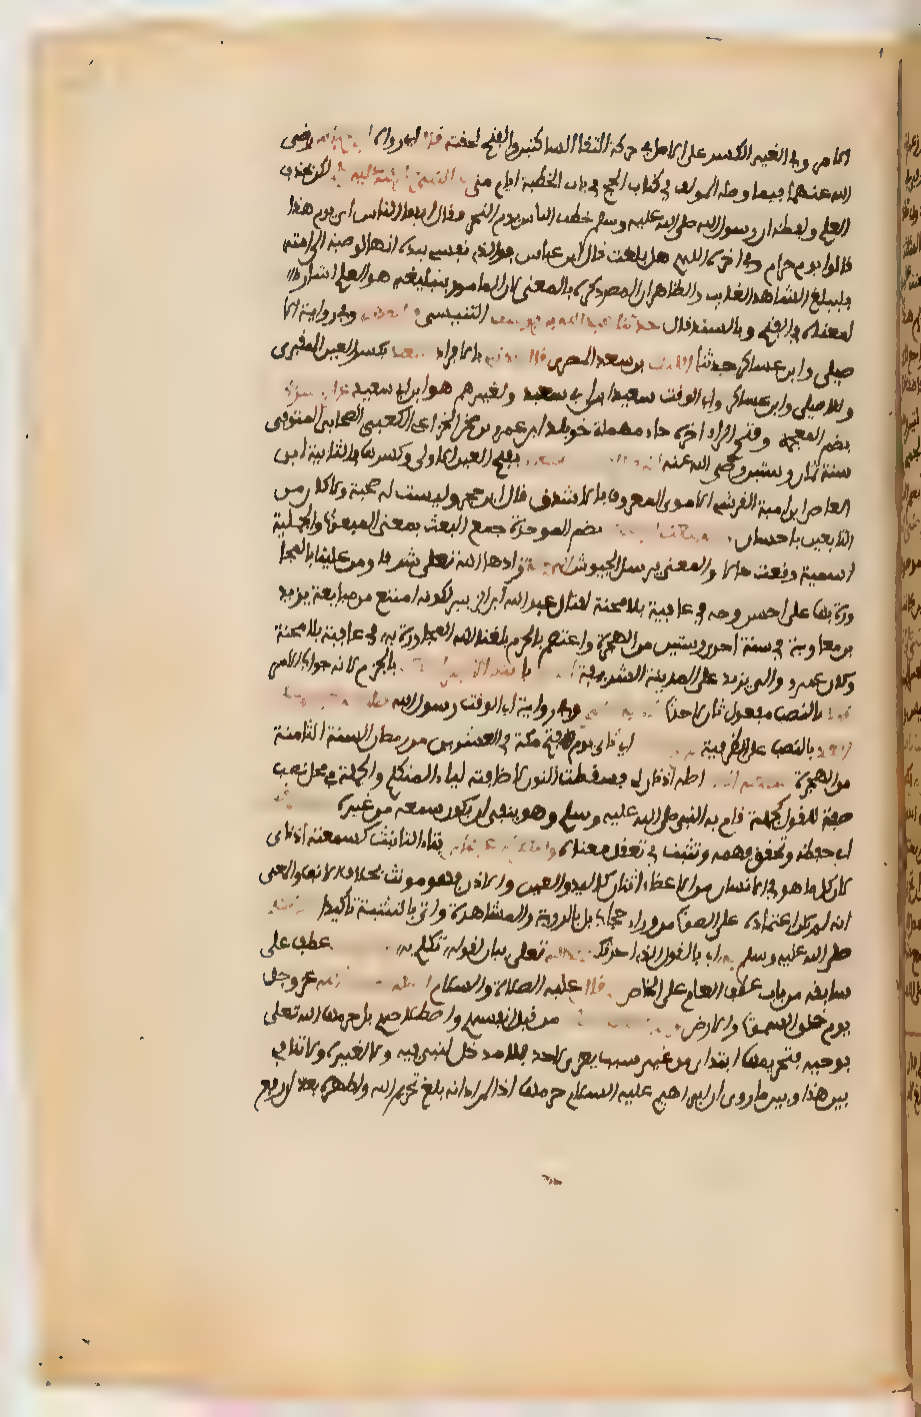 الامر وفي الغين الكسر على الاصل في حركة التقاء الساكنين والفتح لخفته قاله ابن رضى
الله عنهما فيما وصله المولف في كتاب الحج في باب الخطبة ايام منى عن النبي صلى الله عليه لكن بحذف
العلم ولفظه ان رسول الله صلى الله عليه وسلم خطب الناس يوم النحر فقال ايها الناس اي يوم هذا
قالوا يوم حرام وفي اخره اللهم هل بلغت قال ابن عباس فوالذي نفسي بيده انها لوصيته الى امته
فليبلغ الشاهد الغائب والظاهر ان المصنف ذكره بالمعنى لان المامور بتبليغه هو العلم اشار
لمعناه في الفتح وبالسند قال حدثنا عبد الله بن يوسف التنيسي وفي رواية الا
صيلي وابن عساكر حدثنا الليث بن سعد المصري قال بالافراد سعيد بكسر العين المقبري
وللاصيلي وابن عساكر وابي الوقت سعيد ابن ابي سعيد ولغيرهم هو ابن ابي سعيد
بضم المعجمة وفتح الراء اخره حاء مهملة خويلد ابن عمرو بن صخر الخزاعي الكعبي الصحابي المتوفى
سنة ثمان وستين رضي الله عنه بفتح العين الاولى وكسرها في الثانية ابن
العاص ابن امية القرشي الاموي المعروف بالاشدق قال ابن حجر وليست له صحبة ولا كان من
التابعين باحسان بضم الموحدة جمع البعث بمعنى المبعوث والجملة
اسمية وقعت حالا والمعنى يرسل الجيوش زادها الله تعلى شرفا ومن علينا بالمجا
ورة بها على احسن وجه في عافية بلا محنة لقتال عبد الله ابن الزبير لكونه امتنع من مبايعة يزيد
بن معاوية في سنة احدى وستين من الهجرة واعتصم بالحرم بلغنا الله المجاورة به في عافية بلا محنة
وكان عمرو والي يزيد على المدينة الشريفة بالجزم لانه جواب الامر
بالنصب مفعول ثان لاحدث وفي رواية ابي الوقت رسول الله
بالنصب على الظرفية اي ثاني يوم فتح مكة في العشرين من رمضان السنة الثامنة
من الهجرة اصله اذنان لي فسقطت النون لاضافته لياء المتكلم والجملة في محل نصب
صفة للقول كجملة قام به النبي صلى الله عليه وسلم وهو ينفي ان يكون سمعه من غيره
اي حفظه وتحقق فهمه وتثبت في تعقل معناه بتاء التانيث كسمعته اذناي
لان كل ما هو في الانسان من الاعضاء اثنان كاليد والعين والاذن فهو مونث بخلاف الانف والمعنى
انه لم يكن اعتماده على الصوت من وراء حجاب بل بالروية والمشاهدة واتى بالتثنية تاكيدا
صلى الله عليه وسلم به اي بالقول الذي احدثك تعلى بيان لقوله تكلم به عطف على
سابقه من باب عطف العام على الخاص قال عليه الصلاة والسلام عز وجل
يوم خلق السموات والارض من قبل انفسهم واصطلاحهم بل حرمها الله تعلى
بوحيه فتحريمها ابتداءي من غير سبب يعزى لاحد فلا مدخل لنبي فيه ولا لغيره ولا تنافي
بين هذا وبين ما روى ان ابراهيم عليه السلام حرمها اذ المراد انه بلغ تحريم الله واظهره بعد ان رفع